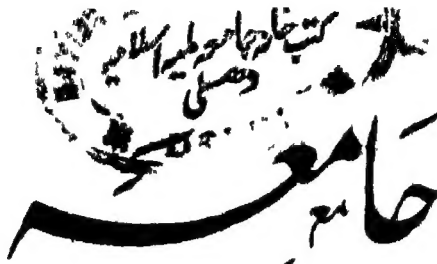 کتب خانہ جامعہ ملیہ اسلامیہ
دہلی
جامعہ